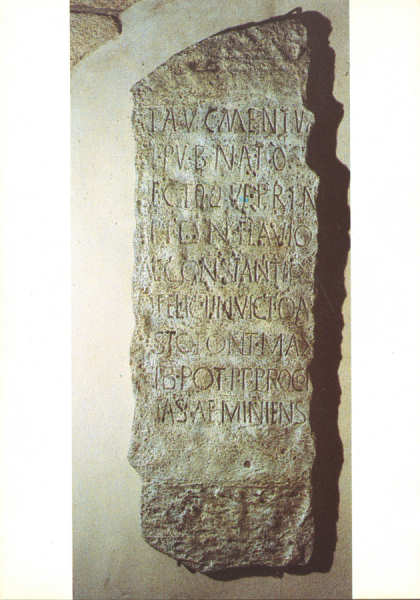 TAVGMENTV
PVBNATO
ECTAQVEPRIN
FLAVIO
CONSTANTIO
FELICI INVICTO A
STO PONT MAX
IB POT PP PROCO
IAS AEMINIENS